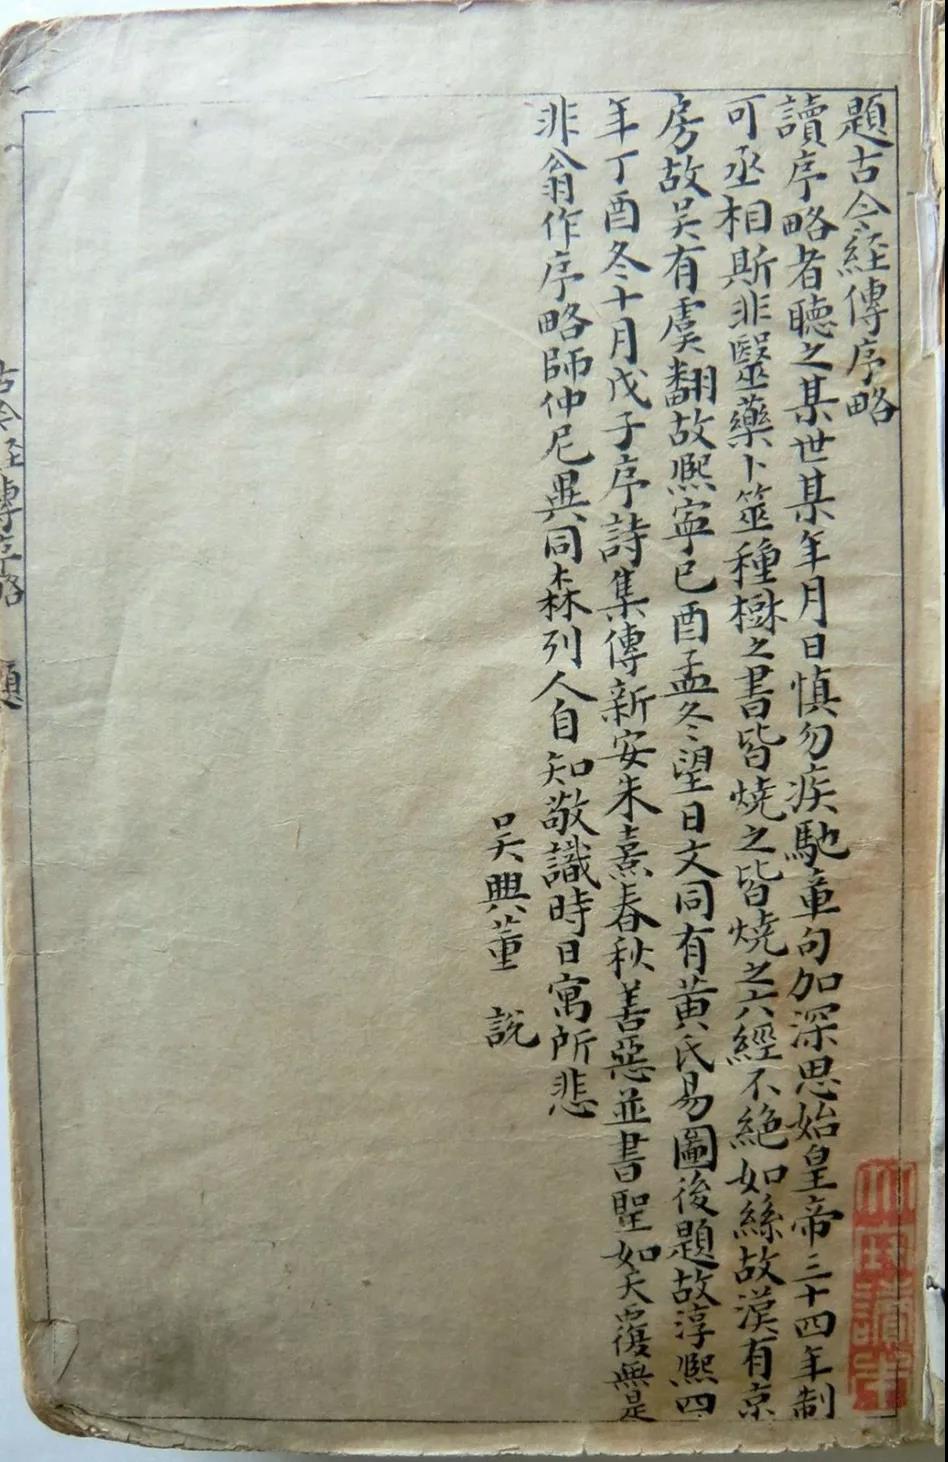 題古今経傳序略
讀序略者聴之某世某年月日慎勿疾馳章句加深思始皇帝三十四年制
可丞相斯非毉藥卜筮種樹之書皆燒之皆燒之六經不絶如絲故漢有京
房故吴有虞翻故熈寧己酉孟冬望日文同有黄氏易圖後題故淳熈四
年丁酉冬十月戊子序詩集傳新安朱熹春秋善惡並書聖如天覆無是
非翁作序略師仲尼異同森列人自知敬識時日寓所悲
吴興董 説
古今経傳序略 題